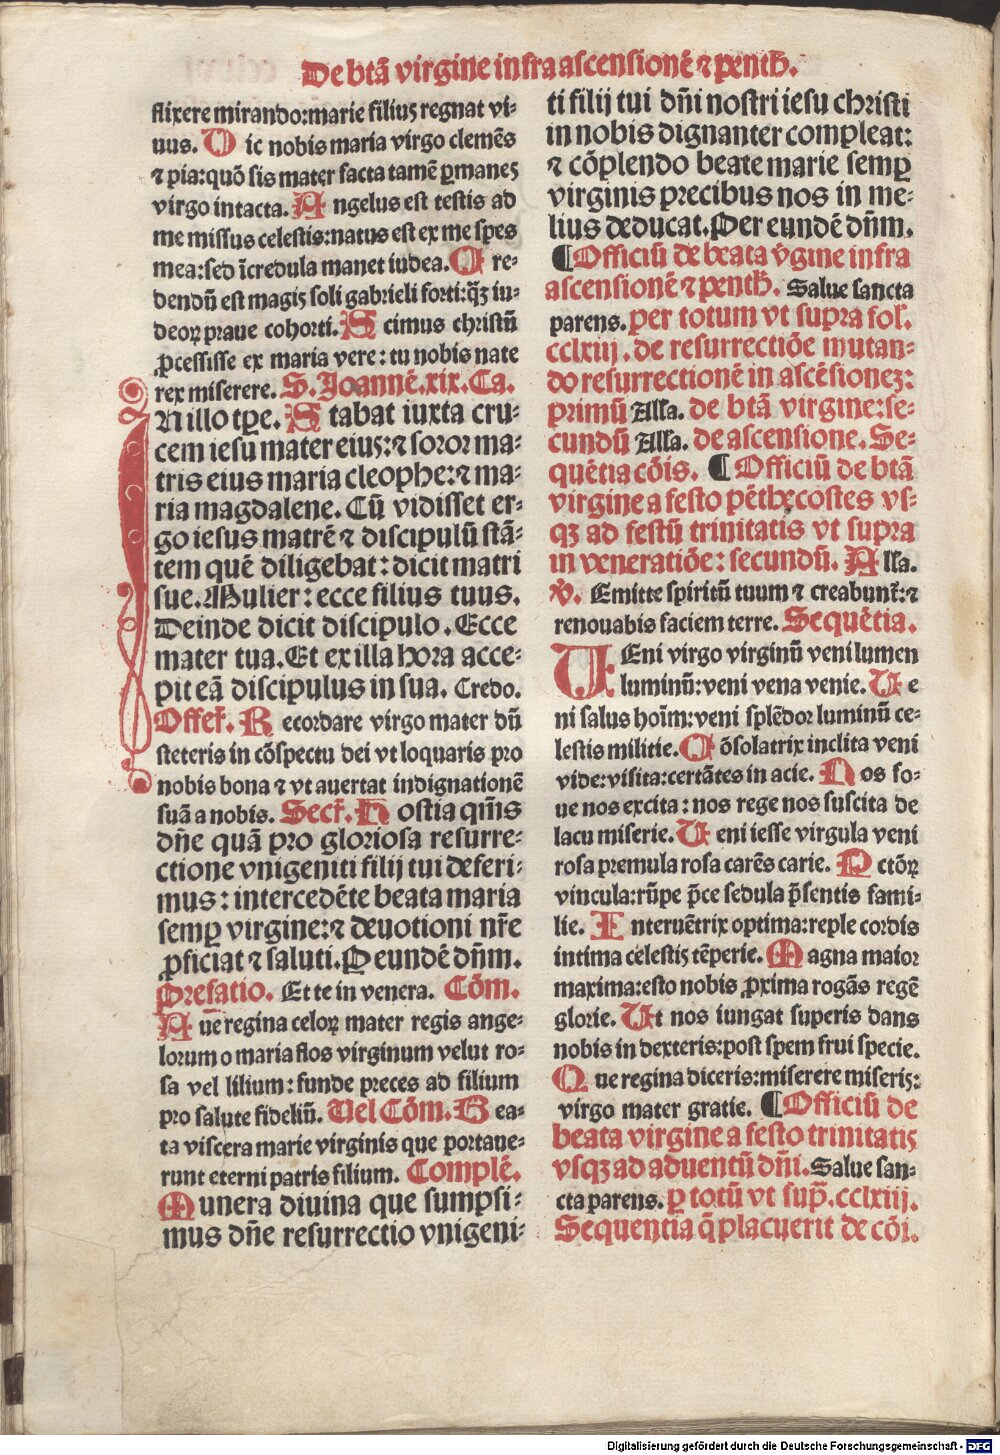 De btã virgine infra ascensionẽ ⁊ penth̃.
flixere mirando:marie filius regnat vi⸗
uus. Dic nobis maria virgo clemẽs
⁊ pia:quõ sis mater facta tamẽ ꝑmanes
virgo intacta. Angelus est testis ad
me missus celestis:natus est ex me spes
mea:sed ĩcredula manet iudea. Cre⸗
dendũ est magis soli gabrieli forti:q̃ꝫ iu⸗
deoꝝ praue cohorti. Scimus christũ
ꝓcessisse ex maria vere: tu nobis nate
rex miserere. S. Joannẽ.xix.Ca.
IN illo tꝑe. Stabat iuxta cru⸗
cem iesu mater eius:⁊ soror ma⸗
tris eius maria cleophe:⁊ ma⸗
ria magdalene. Cũ vidisset er⸗
go iesus matrẽ ⁊ discipulũ stã⸗
tem quẽ diligebat: dicit matri
sue. Mulier: ecce filius tuus.
Deinde dicit discipulo. Ecce
mater tua. Et ex illa hora acce⸗
pit eã discipulus in sua. Credo.
Offert̃. Recordare virgo mater dũ
steteris in cõspectu dei vt loquaris pro
nobis bona ⁊ vt auertat indignationẽ
suã a nobis. Secr̃. Hostia qm̃s
dñe quã pro gloriosa resurre⸗
ctione vnigeniti filij tui deferi⸗
mus: intercedẽte beata maria
semꝑ virgine:⁊ deuotioni nr̃e
ꝓficiat ⁊ saluti. Ꝑ eundẽ dñm.
Prefatio. Et te in venera. Cõm.
Aue regina celoꝝ mater regis ange⸗
lorum o maria flos virginum velut ro⸗
sa vel lilium: funde preces ad filium
pro salute fideliũ. Vel Cõm. Bea⸗
ta viscera marie virginis que portaue⸗
runt eterni patris filium. Complẽ.
Munera diuina que sumpsi⸗
mus dñe resurrectio vnigeni⸗
ti filij tui dñi nostri iesu christi
in nobis dignanter compleat:
⁊ cõplendo beate marie semꝑ
virginis precibus nos in me⸗
lius deducat. Per eundẽ dñm.
¶ Officiũ de beata v̊gine infra
ascensionẽ ⁊ penth̃. Salue sancta
parens. per totum vt supra fol̃.
cclxiij. de resurrectiõe mutan⸗
do resurrectionẽ in ascẽsionez:
primũ Alla. de btã virgine:se⸗
cundũ Alla. de ascensione. Se⸗
quẽtia cõis. ¶ Officiũ de btã
virgine a festo pẽthecostes vs⸗
qꝫ ad festũ trinitatis vt supra
in veneratiõe: secundũ. Alla.
℣. Emitte spiritũ tuum ⁊ creabunt̃:⁊
renouabis faciem terre. Sequẽtia.
VEni virgo virginũ veni lumen
luminũ:veni vena venie. Ve
ni salus hoĩm:veni splẽdor luminũ ce⸗
lestis militie. Cõsolatrix inclita veni
vide:visita:certãtes in acie. Nos fo⸗
ue nos excita: nos rege nos suscita de
lacu miserie. Veni iesse virgula veni
rosa premula rosa carẽs carie. Pctõꝝ
vincula:rũpe p̃ce sedula p̃sentis fami⸗
lie. Interuẽtrix optima:reple cordis
intima celestis tẽperie. Magna maior
maxima:esto nobis ꝓxima rogãs regẽ
glorie. Vt nos iungat superis dans
nobis in dexteris:post spem frui specie.
Que regina diceris:miserere miseris:
virgo mater gratie. ¶ Officiũ de
beata virgine a festo trinitatis
vsqꝫ ad aduentũ dñi. Salue san⸗
cta parens. ꝑ totũ vt sup̃. cclxiij.
Sequentia q̃ placuerit de cõi.
Digitalisierung gefördert durch die Deutsche Forschungsgemeinschaft - DFG